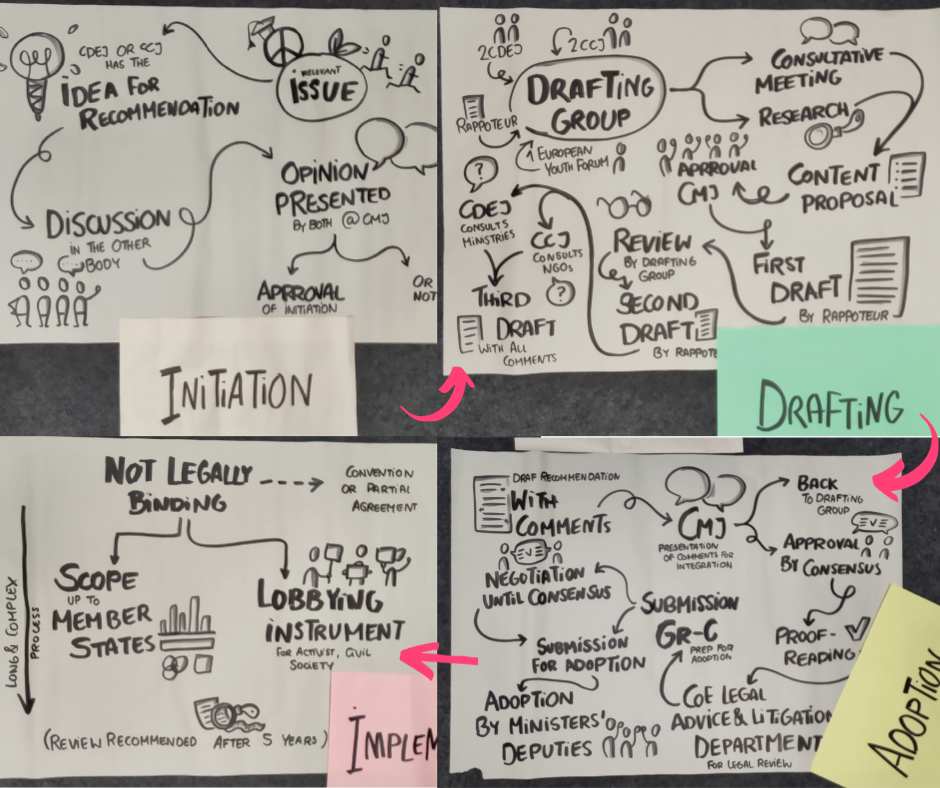 CDEJ OR CCJ
HAS THE
IDEA FOR
RECOMMENDATION
RELEVANT
ISSUE
DISCUSSION
IN THE OTHER
BODY
OPINION
PRESENTED
BY BOTH @ CMJ
APRROVAL
OF INITIATION
OR
NOT
INITIATION
2CDEJ
2CCJ
DRAFTING
GROUP
RAPPOTEUR
EUROPEAN
YOUTH FORUM
CONSULTATIVE
MEETING
RESEARCH
CONTENT
PROPOSAL
APRROVAL
CMJ
FIRST
DRAFT
BY RAPPOTEUR
REVIEW
BY DRAFTING
GROUP
SECOND
DRAFT
BY RAPPOTE
?
CDEJ
CONSULTS
MINISTRIES
CCJ
CONSULTS
NGOs
?
THIRD
DRAFT
WITH ALL
COMMENTS
DRAFTING
DRAF RECOMMENDATION
WITH
COMMENTS
CMJ
PRESENTATION
OF COMMENTS FOR
INTEGRATION
BACK
TO DRAFTING
GROUP
APPROVAL
BY CONSENSUS
PROOF-
READING
COE LEGAL
ADVICE & LITIGATION
DEPARTMENT
FOR LEGAL REVIEW
SUBMISSION
GR-C
PREP FOR
ADOPTION
NEGOTIATION
UNTIL CONSENSUS
SUBMISSION
FOR ADOPTION
ADOPTION
BY MINISTERS'
DEPUTIES
ADOPTION
NOT LEGALLY
BINDING
CONVENTION
OR PARTIAL
AGREEMENT
SCOPE
UP TO
MEMBER
STATES
LOBBYING
INSTRUMENT
FOR ACTIVIST, CIVIL
SOCIETY
LONG & COMPLEX
PROCESS
(REVIEW RECOMMENDED AFTER 5 YEARS)
IMPLEM